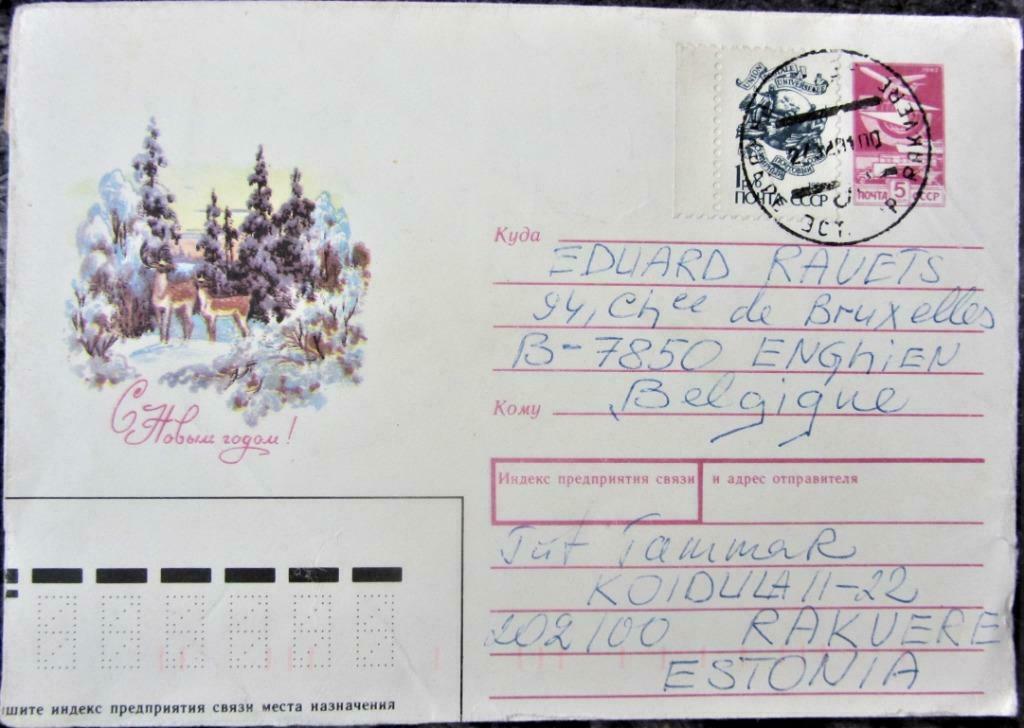 UNION POSTALE UNIVERSELLE
ПОЧТА СССР
ПОЧТА 5 СССР
RAKVERE
РАКВЕРЕ ЭСТ. Р
Куда
EDUARD RAVETS
94, Chee de Bruxelles
B-7850 ENGHIEN
Кому
Belgique
С Новым годом!
Индекс предприятия связи
и адрес отправителя
Tammak
KOIDULA 11-22
202100 RAKVERE
ESTONIA
шите индекс предприятия связи места назначения